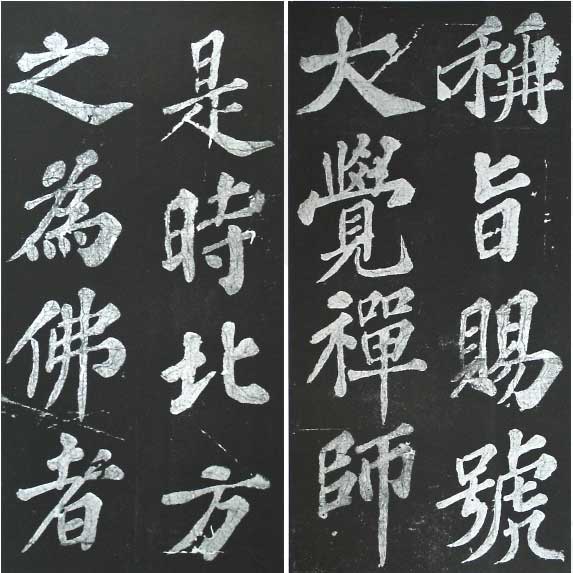 稱旨賜號
大覺禪師
是時北方
之為佛者